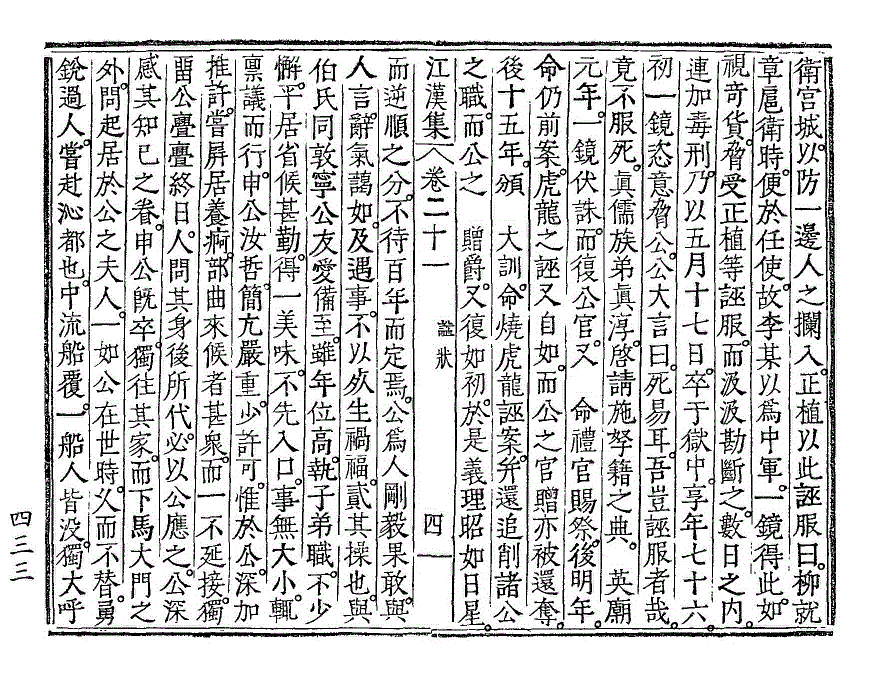 衛宮城。以防一邊人之攔入。正植以此誣服曰。柳就
章扈衛時。便於任使。故李某以爲中軍。一鏡得此。如
視奇貨。脅受正植等誣服。而汲汲勘斷之。數日之內。
連加毒刑。乃以五月十七日。卒于獄中。享年七十六。
初一鏡恣意脅公。公大言曰。死易耳。吾豈誣服者哉。
竟不服死。眞儒族弟眞淳。啓請施孥籍之典。 英廟
元年。一鏡伏誅。而復公官。又 命禮官賜祭。後明年。
命仍前案。虎龍之誣又自如。而公之官贈亦被還奪。
後十五年。頒 大訓。命燒虎龍誣案。幷還追削諸公
之職。而公之 贈爵。又復如初。於是義理昭如日星。
江漢集 卷二十一 諡狀 四
而逆順之分。不待百年而定焉。公爲人剛毅果敢。與
人言。辭氣藹如。及遇事。不以死生禍福。貳其操也。與
伯氏同敦寧公友愛備至。雖年位高。執子弟職。不少
懈。平居省候甚勤。得一美味。不先入口。事無大小。輒
禀議而行。申公汝哲簡亢嚴重。少許可。惟於公。深加
推許。嘗屛居養痾。部曲來候者甚衆。而一不延接。獨
留公亹亹終日。人問其身後所代。必以公應之。公深
感其知已之眷。申公旣卒。獨往其家。而下馬大門之
外。問起居於公之夫人。一如公在世時。久而不替。勇
銳過人。嘗赴沁都也。中流船覆。一船人皆沒。獨大呼
四三三